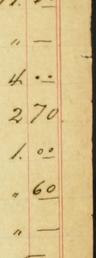 " —
4. ..
2 70
1. 00
" 60
" —